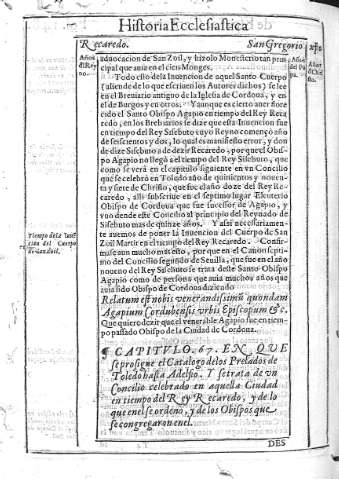 Historia Ecclesiastica
Recaredo. San Gregorio xpſo
aduocacion de San Zoil, y hizolo Moneſterio tan principal que auia en el cien Monges.
Todo eſto de la Inuencion de aquel Santo Cuerpo
(aliende de lo que eſcriuen los Autores dichos) ſe lee
en el Breuiario antiguo de la Igleſia de Cordoua, y en
el de Burgos y en otros. Y aunque es cierto auer florecido
el Santo Obiſpo Agapio en tiempo del Rey Recaredo,
en los Brebiarios ſe dize que eſta Inuencion fue
en tiempo del Rey Siſebuto cuyo Reyno començò año
de ſeiſcientos y dos, lo qual es manifieſto error, y donde
dize Siſebuto a de dezir Recaredo, por que el Obiſpo
Agapio no llegò a el tiempo del Rey Siſebuto, que
como ſe verà en el capitulo ſiguiente en vn Concilio
que ſe celebrò en Toledo año de quinientos y nouenta
y ſiete de Chriſto, que fue el año doze del Rey Recaredo,
alli ſubſcriue en el ſeptimo lugar Eleuterio
Obiſpo de Cordoua que fue ſucceſſor de Agapio, y
vuo dende eſte Concilio al principio del Reynado de
Siſebuto mas de quinze años. Y aſsi neceſſariamente
auemos de poner la Inuencion del Cuerpo de San
Zoil Martir en el tiempo del Rey Recaredo.
Tiempo deſta Inuencion del Cuerpo de San Zoil.
Relatum eſt nobis venerandiſsimũ quondam
Agapium Cordubenſis vrbis Epiſcopum &c.
Que quiere dezir que el venerable Agapio fue en tiempo
paſſado Obiſpo de la Ciudad de Cordoua.
¶ CAPITVLO. 67. EN QVE
ſe proſigue el Catalogo de los Prelados de
Toledo haſta Adelfio. Y ſe trata de vn
Concilio celebrado en aquella Ciudad
en tiempo del Rey Recaredo, y de lo
que en el ſe ordenò, y de los Obiſpos que
ſe congregaron en el.
DES